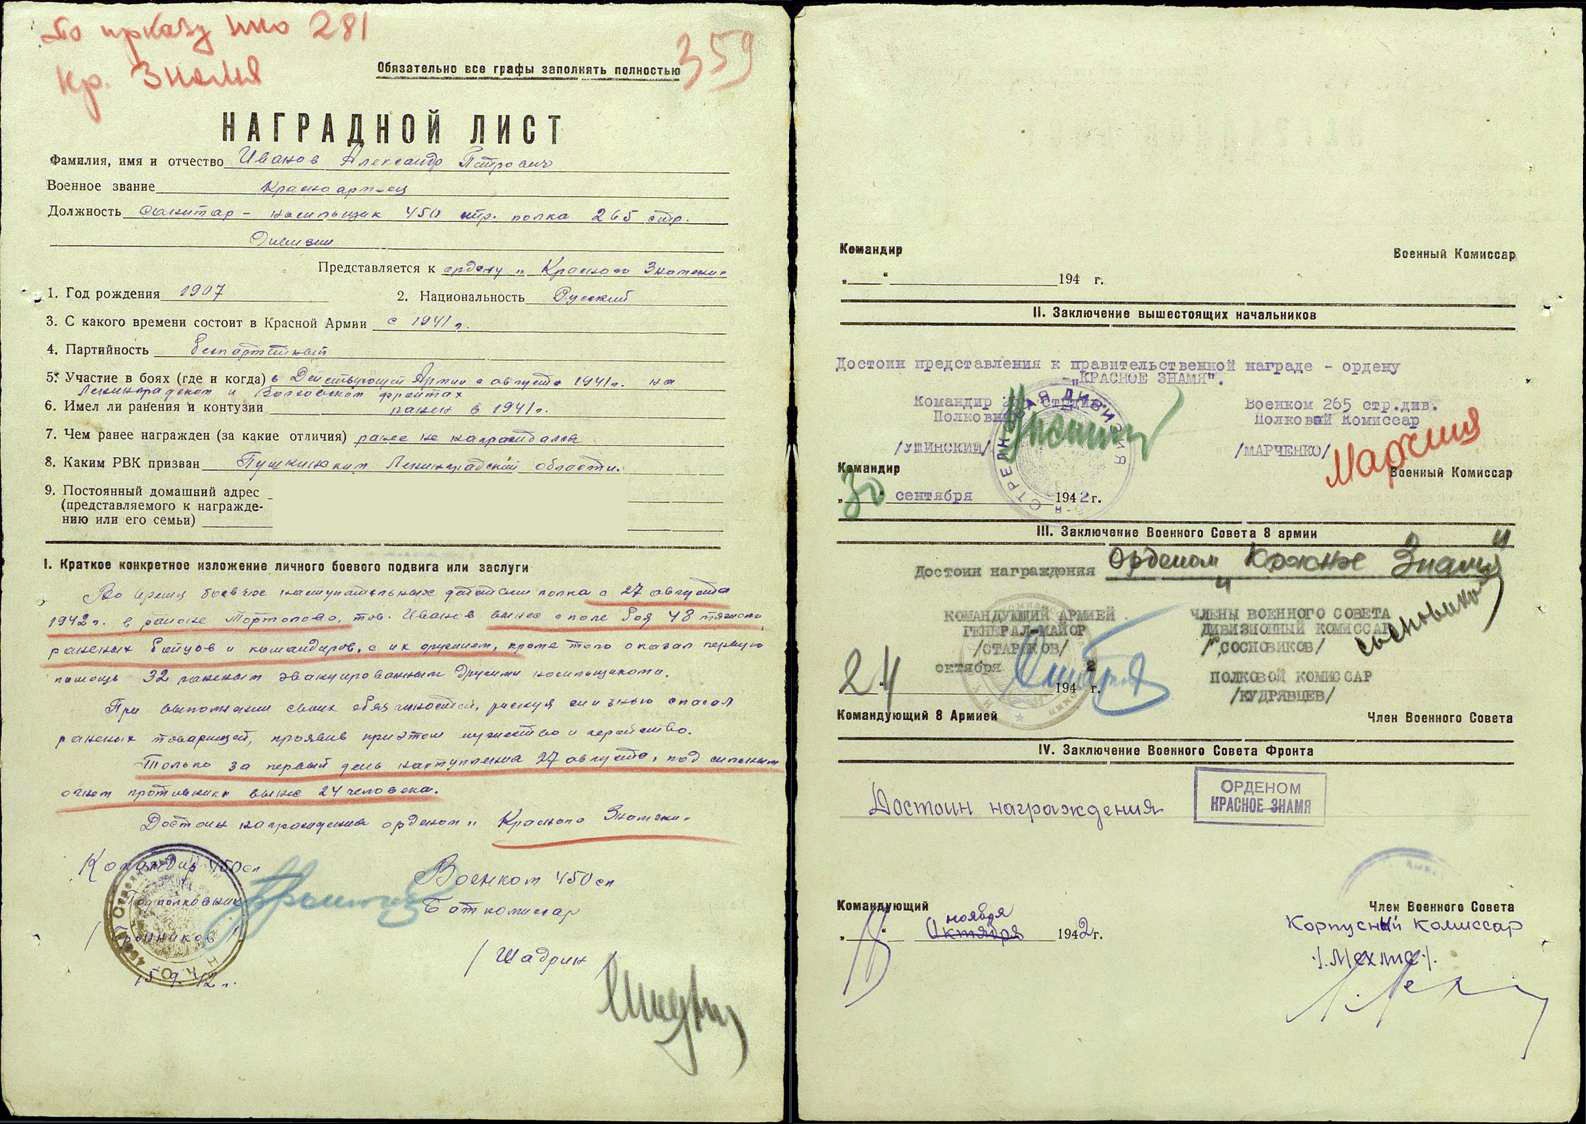 По приказу нко 281
Кр. Знамя
359
Обязательно все графы заполнять полностью
НАГРАДНОЙ ЛИСТ
Фамилия, имя и отчество Иванов Александр Петрович
Военное звание Красноармеец
Должность Санитар - носильщик 450 стр. полка 265 стр.
Дивизии
Представляется к ордену "Красного Знамени"
1. Год рождения 1907
2. Национальность Русский
3. С какого времени состоит в Красной Армии с 1941 г.
4. Партийность беспартийный
5. Участие в боях (где и когда) в Действующей Армии с августа 1941г. на
Ленинградском и Волховском фронтах
6. Имел ли ранения и контузии ранен в 1941г.
7. Чем ранее награжден (за какие отличия) ранее не награждался
8. Каким РВК призван Пушкинским Ленинградской области.
9. Постоянный домашний адрес
(представляемого к награжде-
нию или его семьи)
I. Краткое конкретное изложение личного боевого подвига или заслуги
Во время боевых наступательных действий полка с 27 августа
1942г. в районе Тортолово, тов. Иванов вынес с поля боя 48 тяжело
раненых бойцов и командиров, с их оружием, кроме того оказал первую
помощь 32 раненым эвакуированным другими носильщиками.
При выполнении своих обязанностей, рискуя жизнью спасал
раненых товарищей, проявив при этом мужество и геройство.
Только за первый день наступления 27 августа, под сильным
огнем противника вынес 24 человека.
Достоин награждения орденом "Красного Знамени"
Командир 450 сп
Военком 450 сп
Подполковник
Бат комиссар
/Шадрин/
Командир
Военный Комиссар
„ “ 194 г.
II. Заключение вышестоящих начальников
Достоин представления к правительственной награде - ордену
„КРАСНОЕ ЗНАМЯ".
Командир 265 стр.див.
Военком 265 стр.див.
Полковник
Полковой Комиссар
/УШИНСКИЙ/
/МАРЧЕНКО/
Командир
Военный Комиссар
„30“ сентября 1942 г.
III. Заключение Военного Совета 8 армии
Достоин награждения Орденом "Красное Знамя"
КОМАНДУЮЩИЙ АРМИЕЙ
ЧЛЕНЫ ВОЕННОГО СОВЕТА
ГЕНЕРАЛ-МАЙОР
ДИВИЗИОННЫЙ КОМИССАР
/СТАРИКОВ/
/СОСНОВИКОВ/
Сосновиков
24 октября 1942 г.
ПОЛКОВОЙ КОМИССАР
/КУДРЯВЦЕВ/
Командующий 8 Армией
Член Военного Совета
IV. Заключение Военного Совета Фронта
Достоин награждения
ОРДЕНОМ
КРАСНОЕ ЗНАМЯ
Командующий
Член Военного Совета
ноября
Октября 1942 г.
Корпусный Комиссар
/Мехлис/